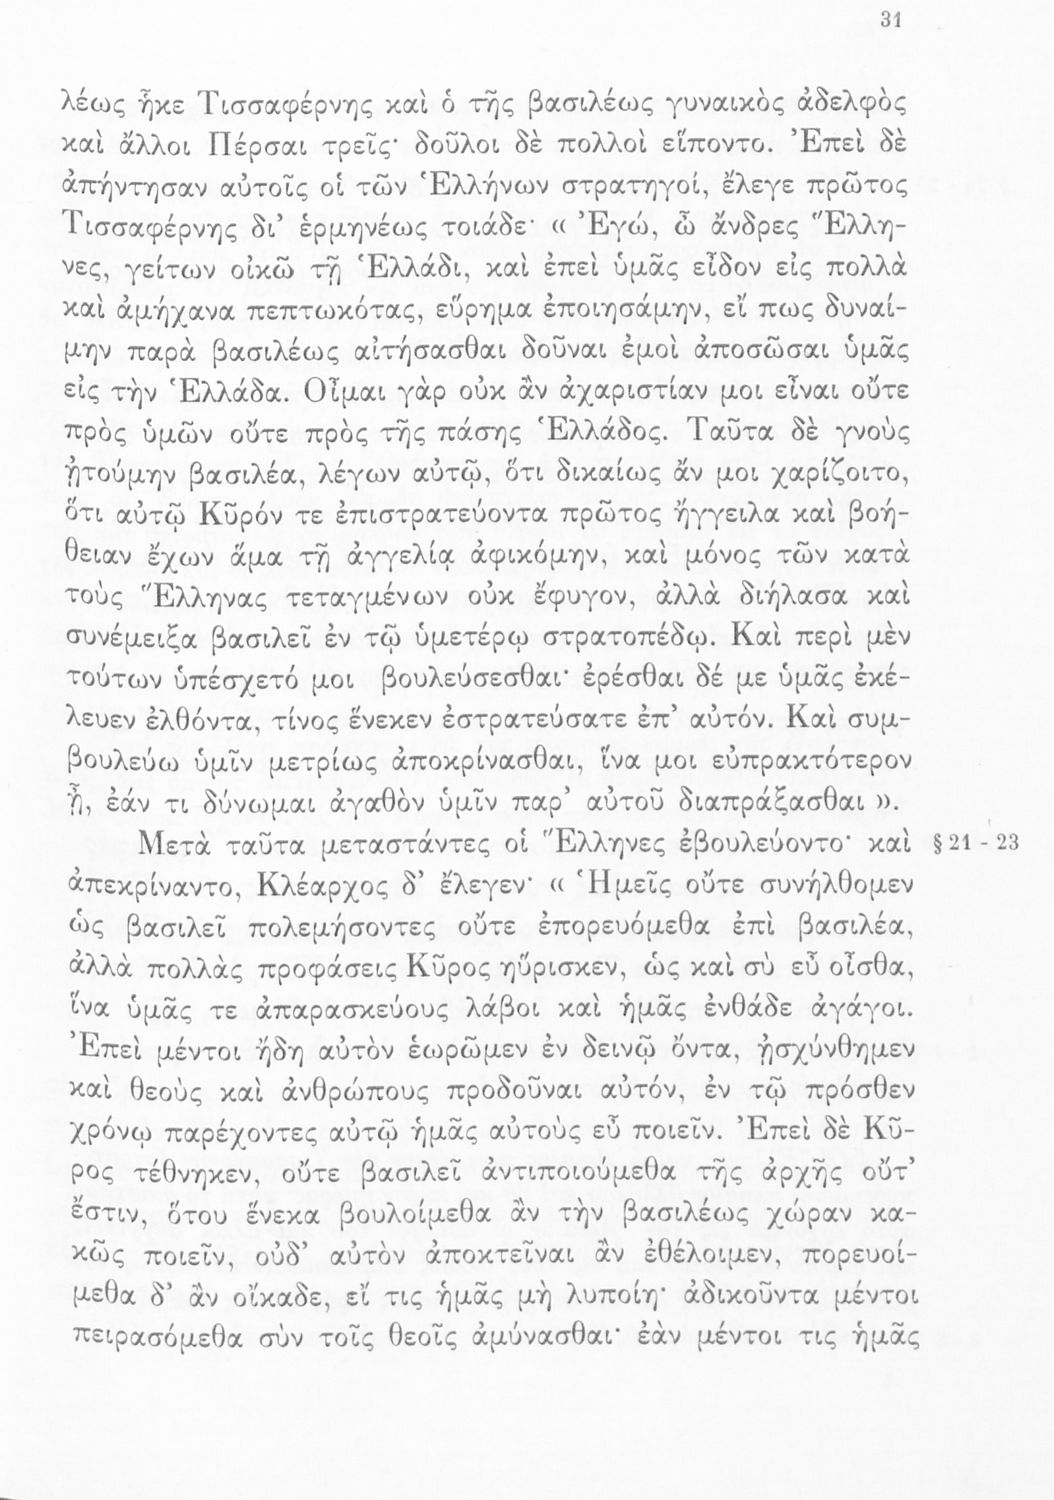 31
λέως ἧκε Τισσαφέρνης καὶ ὁ τῆς βασιλέως γυναικὸς ἀδελφὸς
καὶ ἄλλοι Πέρσαι τρεῖς· δοῦλοι δὲ πολλοὶ εἵποντο. Ἐπεὶ δὲ
ἀπήντησαν αὐτοῖς οἱ τῶν Ἑλλήνων στρατηγοί, ἔλεγε πρῶτος
Τισσαφέρνης δι’ ἑρμηνέως τοιάδε· « Ἐγώ, ὦ ἄνδρες Ἕλλη-
νες, γείτων οἰκῶ τῇ Ἑλλάδι, καὶ ἐπεὶ ὑμᾶς εἶδον εἰς πολλὰ
καὶ ἀμήχανα πεπτωκότας, εὕρημα ἐποιησάμην, εἴ πως δυναί-
μην παρὰ βασιλέως αἰτήσασθαι δοῦναι ἐμοὶ ἀποσῶσαι ὑμᾶς
εἰς τὴν Ἑλλάδα. Οἶμαι γὰρ οὐκ ἂν ἀχαριστίαν μοι εἶναι οὔτε
πρὸς ὑμῶν οὔτε πρὸς τῆς πάσης Ἑλλάδος. Ταῦτα δὲ γνοὺς
ᾐτούμην βασιλέα, λέγων αὐτῷ, ὅτι δικαίως ἄν μοι χαρίζοιτο,
ὅτι αὐτῷ Κῦρόν τε ἐπιστρατεύοντα πρῶτος ἤγγειλα καὶ βοή-
θειαν ἔχων ἅμα τῇ ἀγγελίᾳ ἀφικόμην, καὶ μόνος τῶν κατὰ
τοὺς Ἕλληνας τεταγμένων οὐκ ἔφυγον, ἀλλὰ διήλασα καὶ
συνέμειξα βασιλεῖ ἐν τῷ ὑμετέρῳ στρατοπέδῳ. Καὶ περὶ μὲν
τούτων ὑπέσχετό μοι βουλεύσεσθαι· ἐρέσθαι δέ με ὑμᾶς ἐκέ-
λευεν ἐλθόντα, τίνος ἕνεκεν ἐστρατεύσατε ἐπ’ αὐτόν. Καὶ συμ-
βουλεύω ὑμῖν μετρίως ἀποκρίνασθαι, ἵνα μοι εὐπρακτότερον
ᾖ, ἐάν τι δύνωμαι ἀγαθὸν ὑμῖν παρ’ αὐτοῦ διαπράξασθαι ».
Μετὰ ταῦτα μεταστάντες οἱ Ἕλληνες ἐβουλεύοντο· καὶ § 21 - 23
ἀπεκρίναντο, Κλέαρχος δ’ ἔλεγεν· « Ἡμεῖς οὔτε συνήλθομεν
ὡς βασιλεῖ πολεμήσοντες οὔτε ἐπορευόμεθα ἐπὶ βασιλέα,
ἀλλὰ πολλὰς προφάσεις Κῦρος ηὕρισκεν, ὡς καὶ σὺ εὖ οἶσθα,
ἵνα ὑμᾶς τε ἀπαρασκεύους λάβοι καὶ ἡμᾶς ἐνθάδε ἀγάγοι.
Ἐπεὶ μέντοι ἤδη αὐτὸν ἑωρῶμεν ἐν δεινῷ ὄντα, ᾐσχύνθημεν
καὶ θεοὺς καὶ ἀνθρώπους προδοῦναι αὐτόν, ἐν τῷ πρόσθεν
χρόνῳ παρέχοντες αὐτῷ ἡμᾶς αὐτοὺς εὖ ποιεῖν. Ἐπεὶ δὲ Κῦ-
ρος τέθνηκεν, οὔτε βασιλεῖ ἀντιποιούμεθα τῆς ἀρχῆς οὔτ’
ἔστιν, ὅτου ἕνεκα βουλοίμεθα ἂν τὴν βασιλέως χώραν κα-
κῶς ποιεῖν, οὐδ’ αὐτὸν ἀποκτεῖναι ἂν ἐθέλοιμεν, πορευοί-
μεθα δ’ ἂν οἴκαδε, εἴ τις ἡμᾶς μὴ λυποίη· ἀδικοῦντα μέντοι
πειρασόμεθα σὺν τοῖς θεοῖς ἀμύνασθαι· ἐὰν μέντοι τις ἡμᾶς